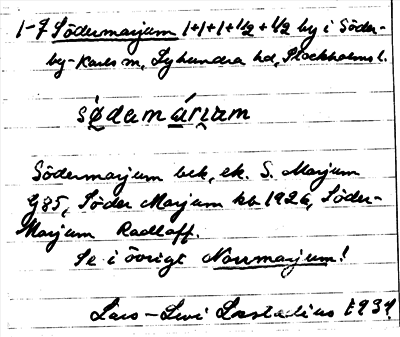 1-7 Södermarjum 1+1+1+1/2+1/2 by i Söder-
by-Karls sn, Lyhundra hd, Stockholms l.
södɘmárjɘm
Södermarjum bek, ek. S. Marjum
G85, Söder Marjum kb 1926, Söder-
Marjum Radloff.
Se i övrigt Norrmarjum!
Lars-Levi Læstadius 1934